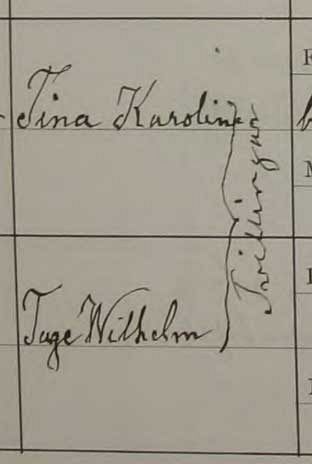 Tina Karolina
Tvillingar
Tage Wilhelm